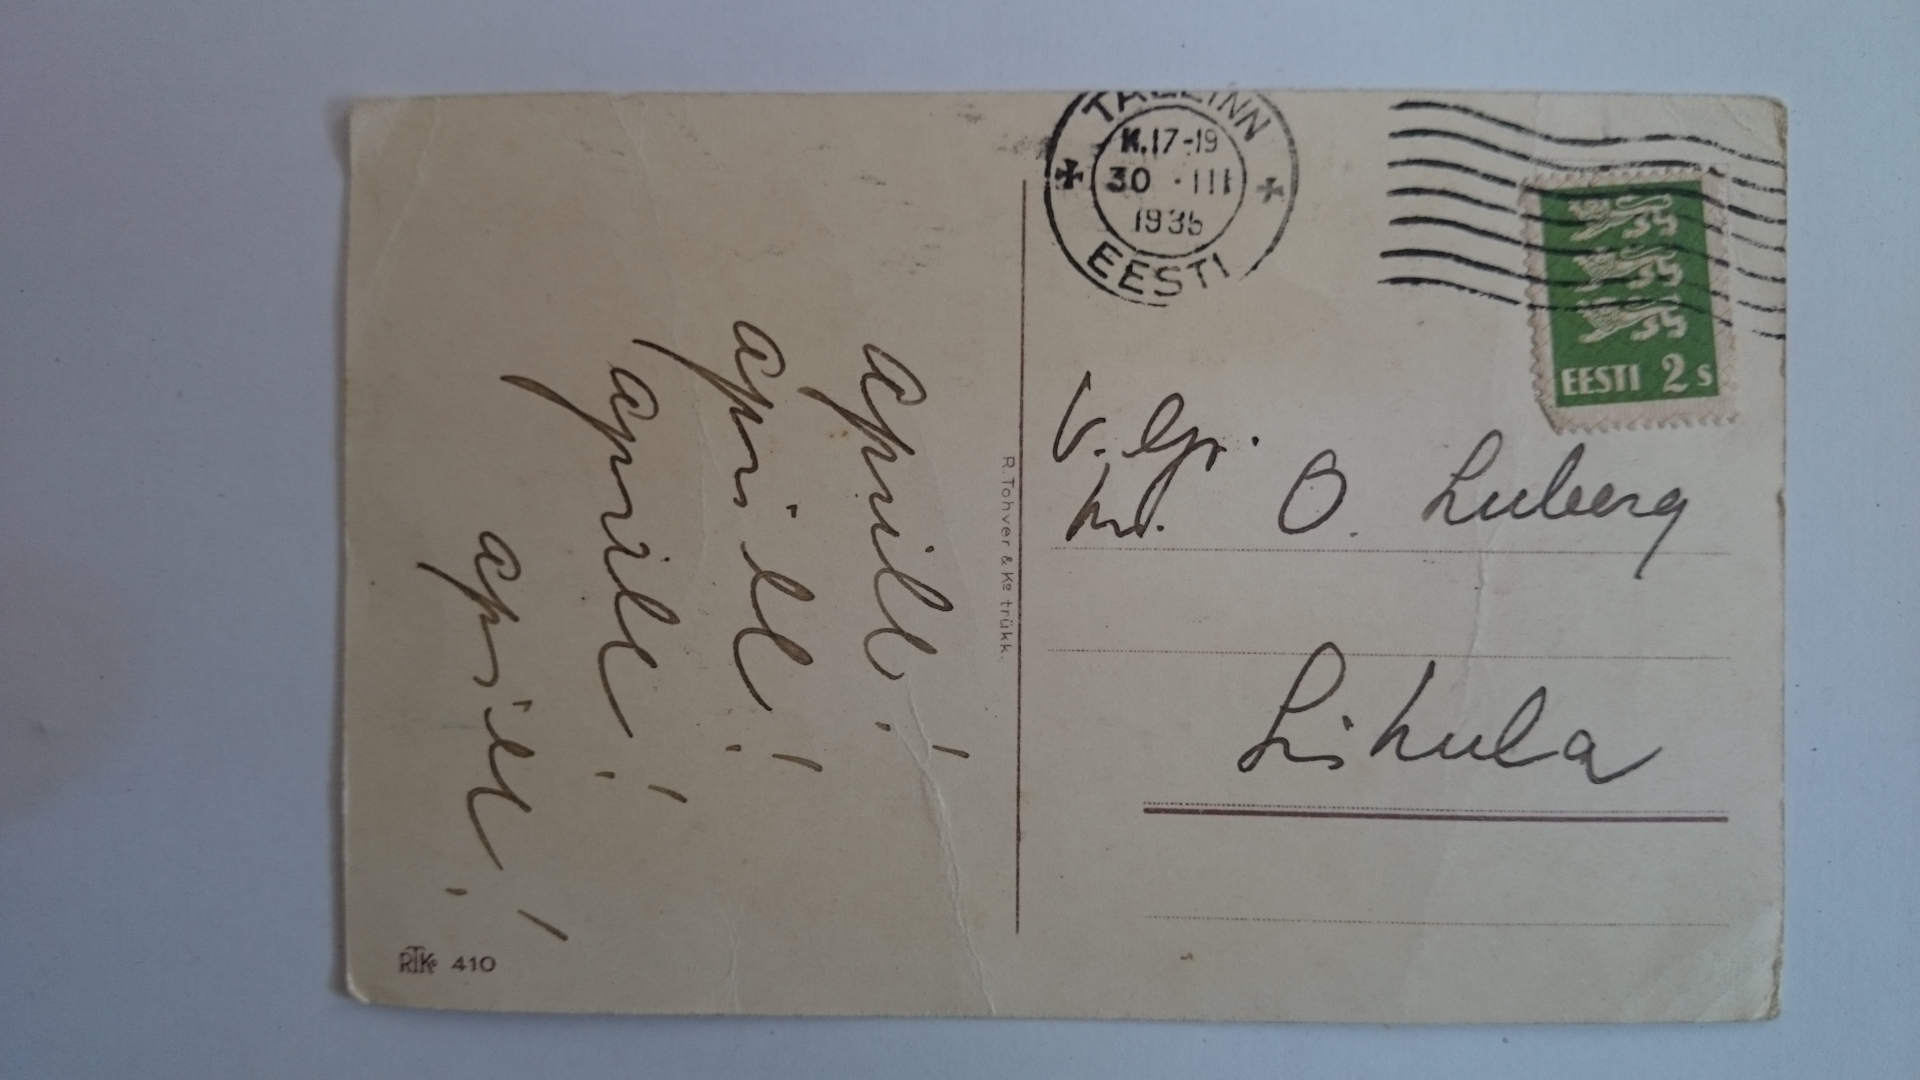 aprill!
aprill!
aprill!
aprill!
RTKo 410
R. Tohver & Ko trükk.
TALLINN
K.17-19
30 · III
1935
EESTI
EESTI 2 s
V. Gr.
hr. O. Luberg
Lihula